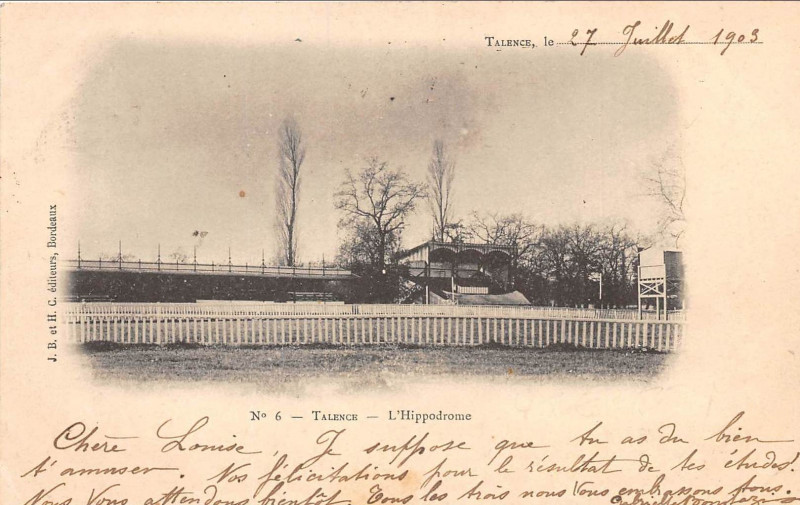 TALENCE, le 27 Juillet 1903
J. B. et H. C. éditeurs, Bordeaux
Nº 6 — TALENCE — L'Hippodrome
Chère Louise, Je suppose que tu as du bien
t'amuser. Nos félicitations pour le résultat de tes études!
Nous Vous attendons bientôt Tous les trois nous Vous embrassons tous.
Gabrielle